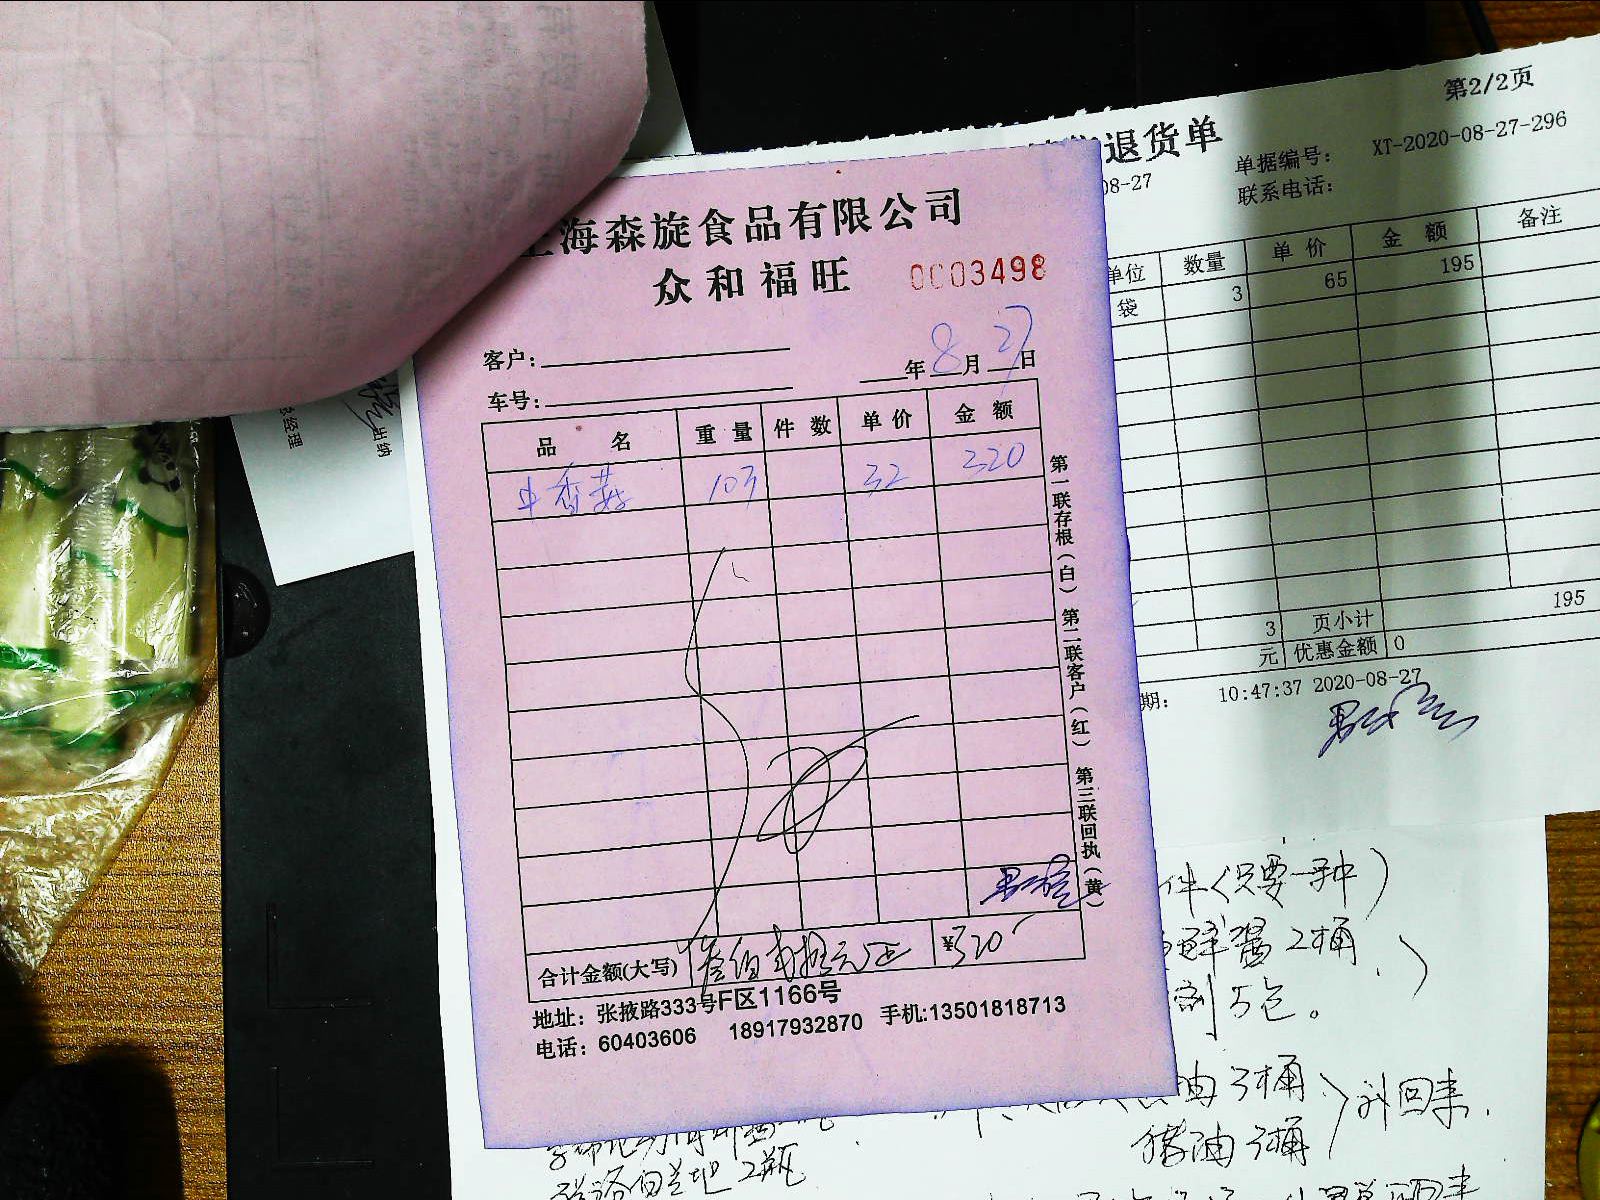 海森旋食品有限公司
众和福旺 0003498
客户：
年8月27日
车号：
品名 重量 件数 单价 金额
中香菇 10斤 32 320
第一联存根（白） 第二联客户（红） 第三联回执（黄）
合计金额(大写) 叁佰贰拾元正 ¥320
地址：张掖路333号F区1166号
电话：60403606 18917932870 手机:13501818713
第2/2页
退货单
单据编号： XT-2020-08-27-296
08-27 联系电话：
单位 数量 单价 金额 备注
袋 3 65 195
3 页小计 195
元 优惠金额 0
期： 10:47:37 2020-08-27
总经理
出纳
件（只要一种）
酱2桶
5包。
油3桶
猪油3桶
回来
2瓶